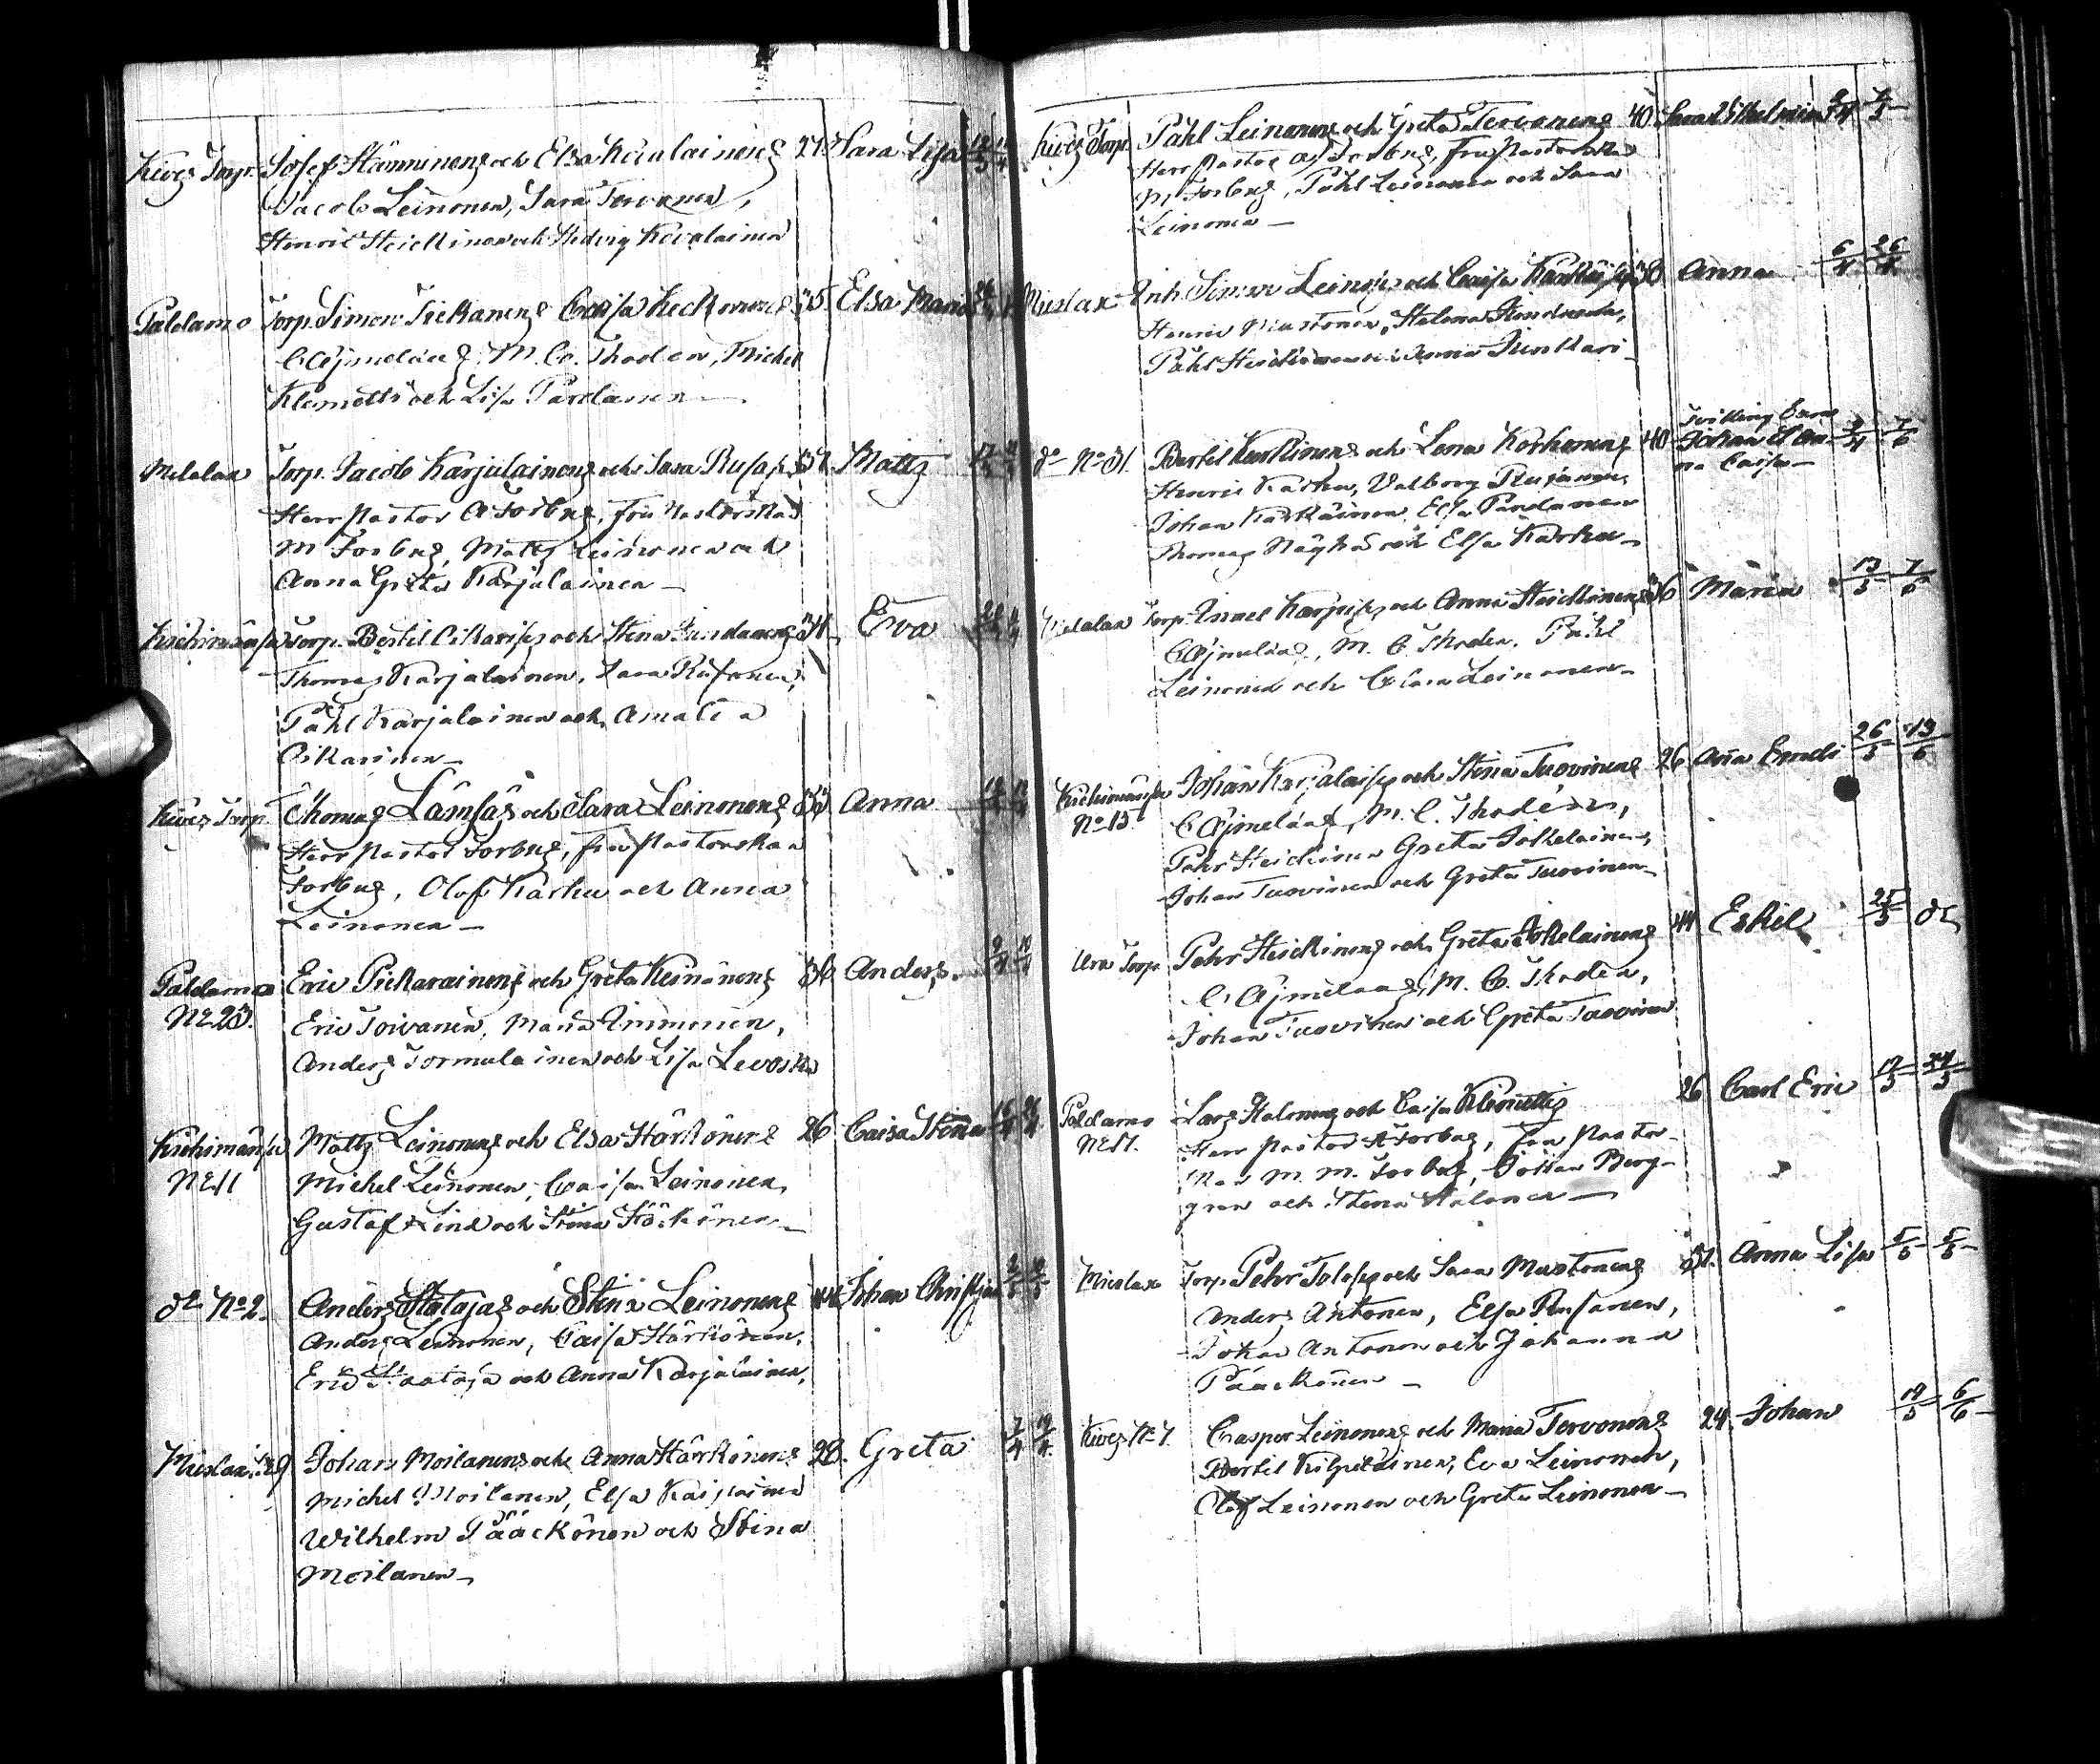 Kives Torp. Josef Hämminens och Elsa Kovalainens 27. Sara Lisa
Jacob Leinonen, Sara Tervonen,
Henric Heickinen och Hedvig Kovalainen
Paldamo Torp. Simon Tickanens Caisa Keckonens 35. Elsa Maria
C Ajmelæus, M. C. Thoden, Michel
Klemetti och Lisa Pardanen
Melalax Torp. Jacob Karjulainens och Sara Rusas 37. Matts
Herr Pastor A Forbus, fru Pastorskan
M Forbus, Matts Leinonen och
Anna Greta Karjalainen
Kiehimänsu Torp. Bertil Oikaris och Stina Eva
Thomas Karjalainen, Sara Rusanen,
Påhl Karjalainen och Amalia
Oikarinen
Kives Torp. Thomas Lämsäs och Sara Leinonens 33 Anna
Herr Pastor Forbus, fru Pastorskan
Forbus, Olof Karhu och Anna
Leinonen
Paldamo Eric Pickarainens och Greta Keinänens 36 Anders. 9/4 10/4
No 23. Eric Toivanen, Maria Immonen,
Anders Tormulainen och Lisa Levoska
Kiehimänsu Matts Leinonens och Elsa Härkönens 26 Caisa Stina
No 11 Michel Leinonen, Caisa Leinonen,
Gustaf Lind och Stina Härkönen
do No 2. Anders Hatajas och Stina Leinonens 44 Johan Christian
Anders Leinonen, Caisa Härkönen,
Eric Haataja och Anna Karjalainen,
Mieslax 29 Johan Moilanens och Anna Härkönens 28. Greta 7/4 19/4
Michel Moilanen, Elsa Kaipainen
Wilhelm Pääckönen och Stina
Moilanen
Kives Torp. Påhl Leinonens och Greta Tervonens 40 Sara Wilhelmina
Herr Pastor A Forbus, fru Pastorskan
M Forbus, Påhl Leinonen och Sara
Leinonen
Mieslax Inh. Simon Leinos och Caisa 38 Anna 6/4 26/4
Henric Mustonen, Helena
Påhl Heickinen och Anna Junkkari
Tvilling barn
do No 31. Bertil och Lena Korhonens 40 Johan et An-
Henric Karhu, Valborg Rusanen, na Caisa
Johan Karkäinen, Elsa Pardanen
Thomas och Elsa Karhu
Melalax Torp. Israel Karpis och Anna Heickinens 36 Maria 13/5 7/6
C Ajmelæus, M. C. Thoden, Påhl
Leinonen och Clara Leinonen
Kiehimänsu Johan Karjalais och Stina Tuovinens 26 26/5 13/6
No 15. C Ajmelæus, M. C. Thodén,
Pehr Heickinen Greta Tolkelainen,
Johan Tuovinen och Greta Tuovinen
Ura Torp. Pehr Heickinens och Greta Tolkelainens 44 Eskel 25/5 do
C Ajmelæus, M. C. Thoden,
Johan Tuovinen och Greta Tuovinen
Paldamo Lars Halonens och Caisa Klemettis 26 Carl Eric 17/5 24/5
No 17. Herr Pastor A Forbus, Fru Pastor-
skan M. M. Forbus, Johan Berg-
gren och Stina Halonen
Mieslax Torp. Pehr Tolos och Sara Mustonens 37. Anna Lisa 5/5 5/5
Anders Antonen, Elsa Rusanen,
Johan Antonen och Johanna
Pääckönen
Kives No 7. Casper Leinonens och Maria Tervonens 24. Johan 19/5 6/6
Bertil Kilpeläinen, Eva Leinonen,
Olof Leinonen och Greta Leinonen